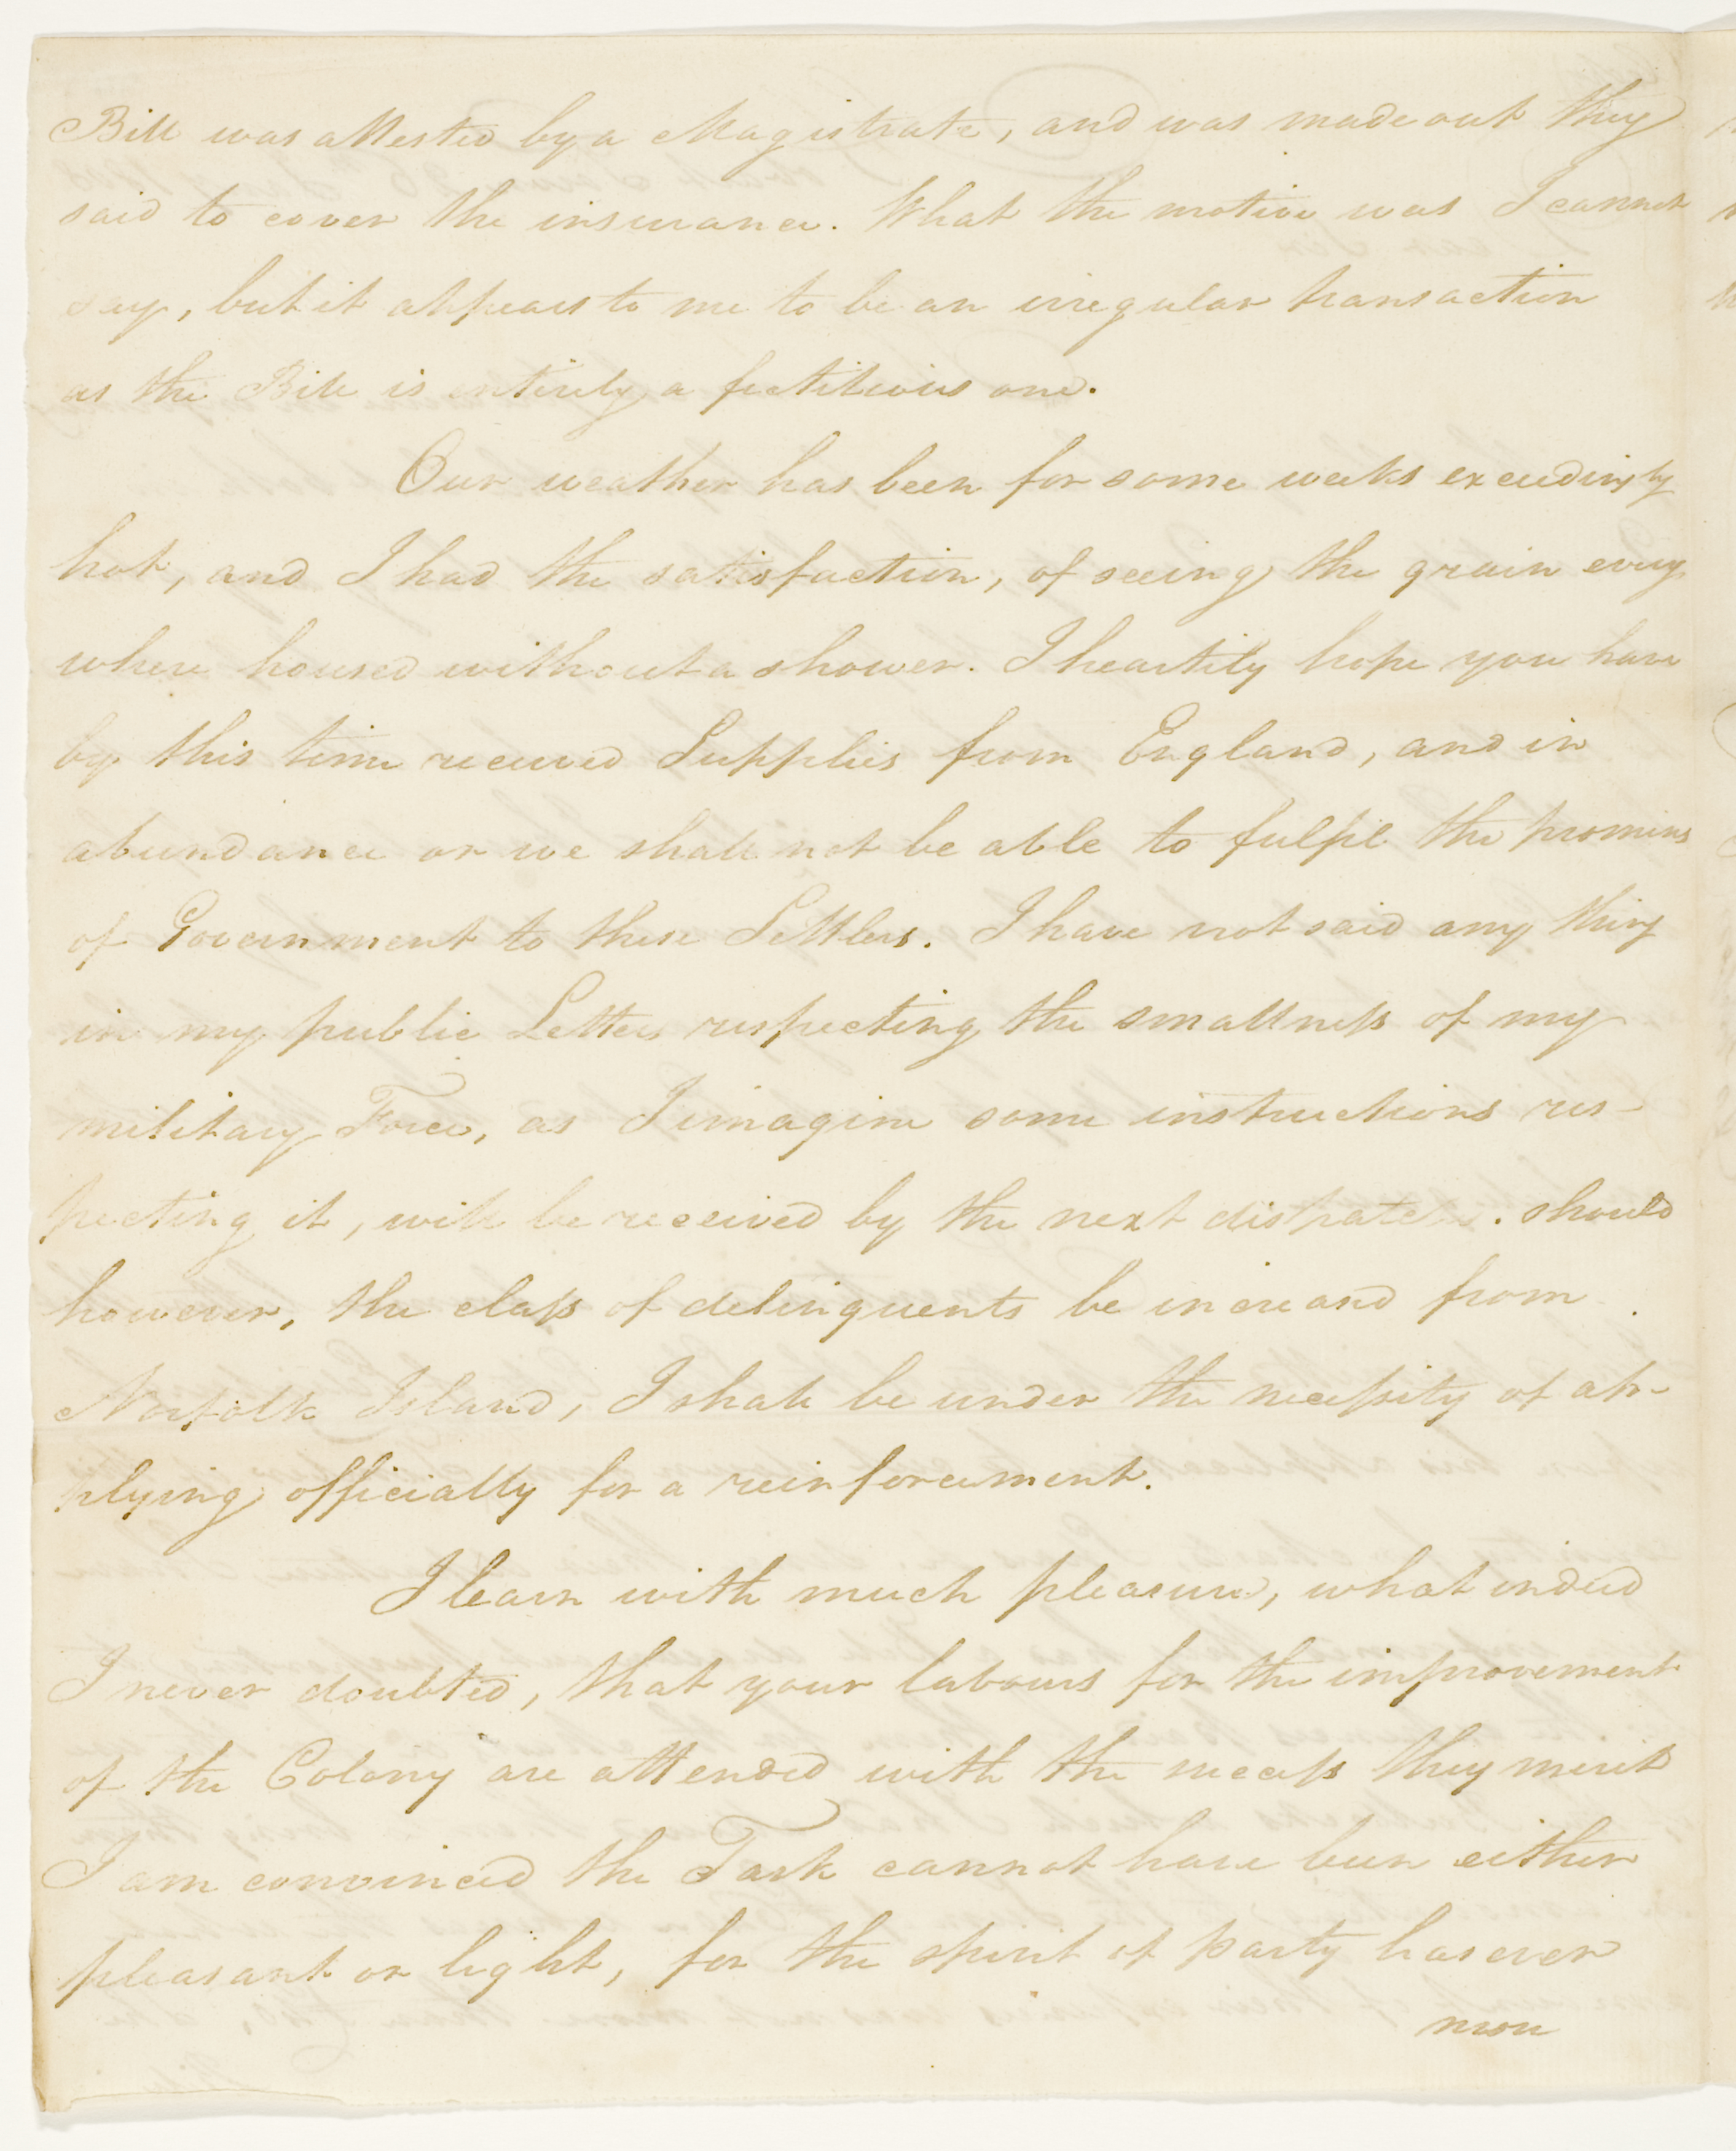 Bill was attested by a Magistrate, and was made out they
said to cover the insurance. What the motive was I cannot
say, but it appears to me to be an irregular transaction
as the Bill is entirely a fictitious one.
Our weather has been for some weeks exceedingly
hot, and I had the satisfaction, of seeing the grain every
where housed without a shower. I heartily hope you have
by this time received Supplies from England, and in
abundance or we shall not be able to fulfil the promises
of Government to these Settlers. I have not said any thing
in my public Letter respecting the smallness of my
military Force, as I imagine some instructions res-
pecting it, will be received by the next dispatches. should
however, the class of delinquents be increased from
Norfolk Island, I shall be under the necessity of ap-
plying officially for a reinforcement.
I learn with much pleasure, what indeed
I never doubted, that your labours for the improvement
of the Colony are attended with the success they merit
I am convinced the Task cannot have been either
pleasant or light, for the spirit of party has ever
more